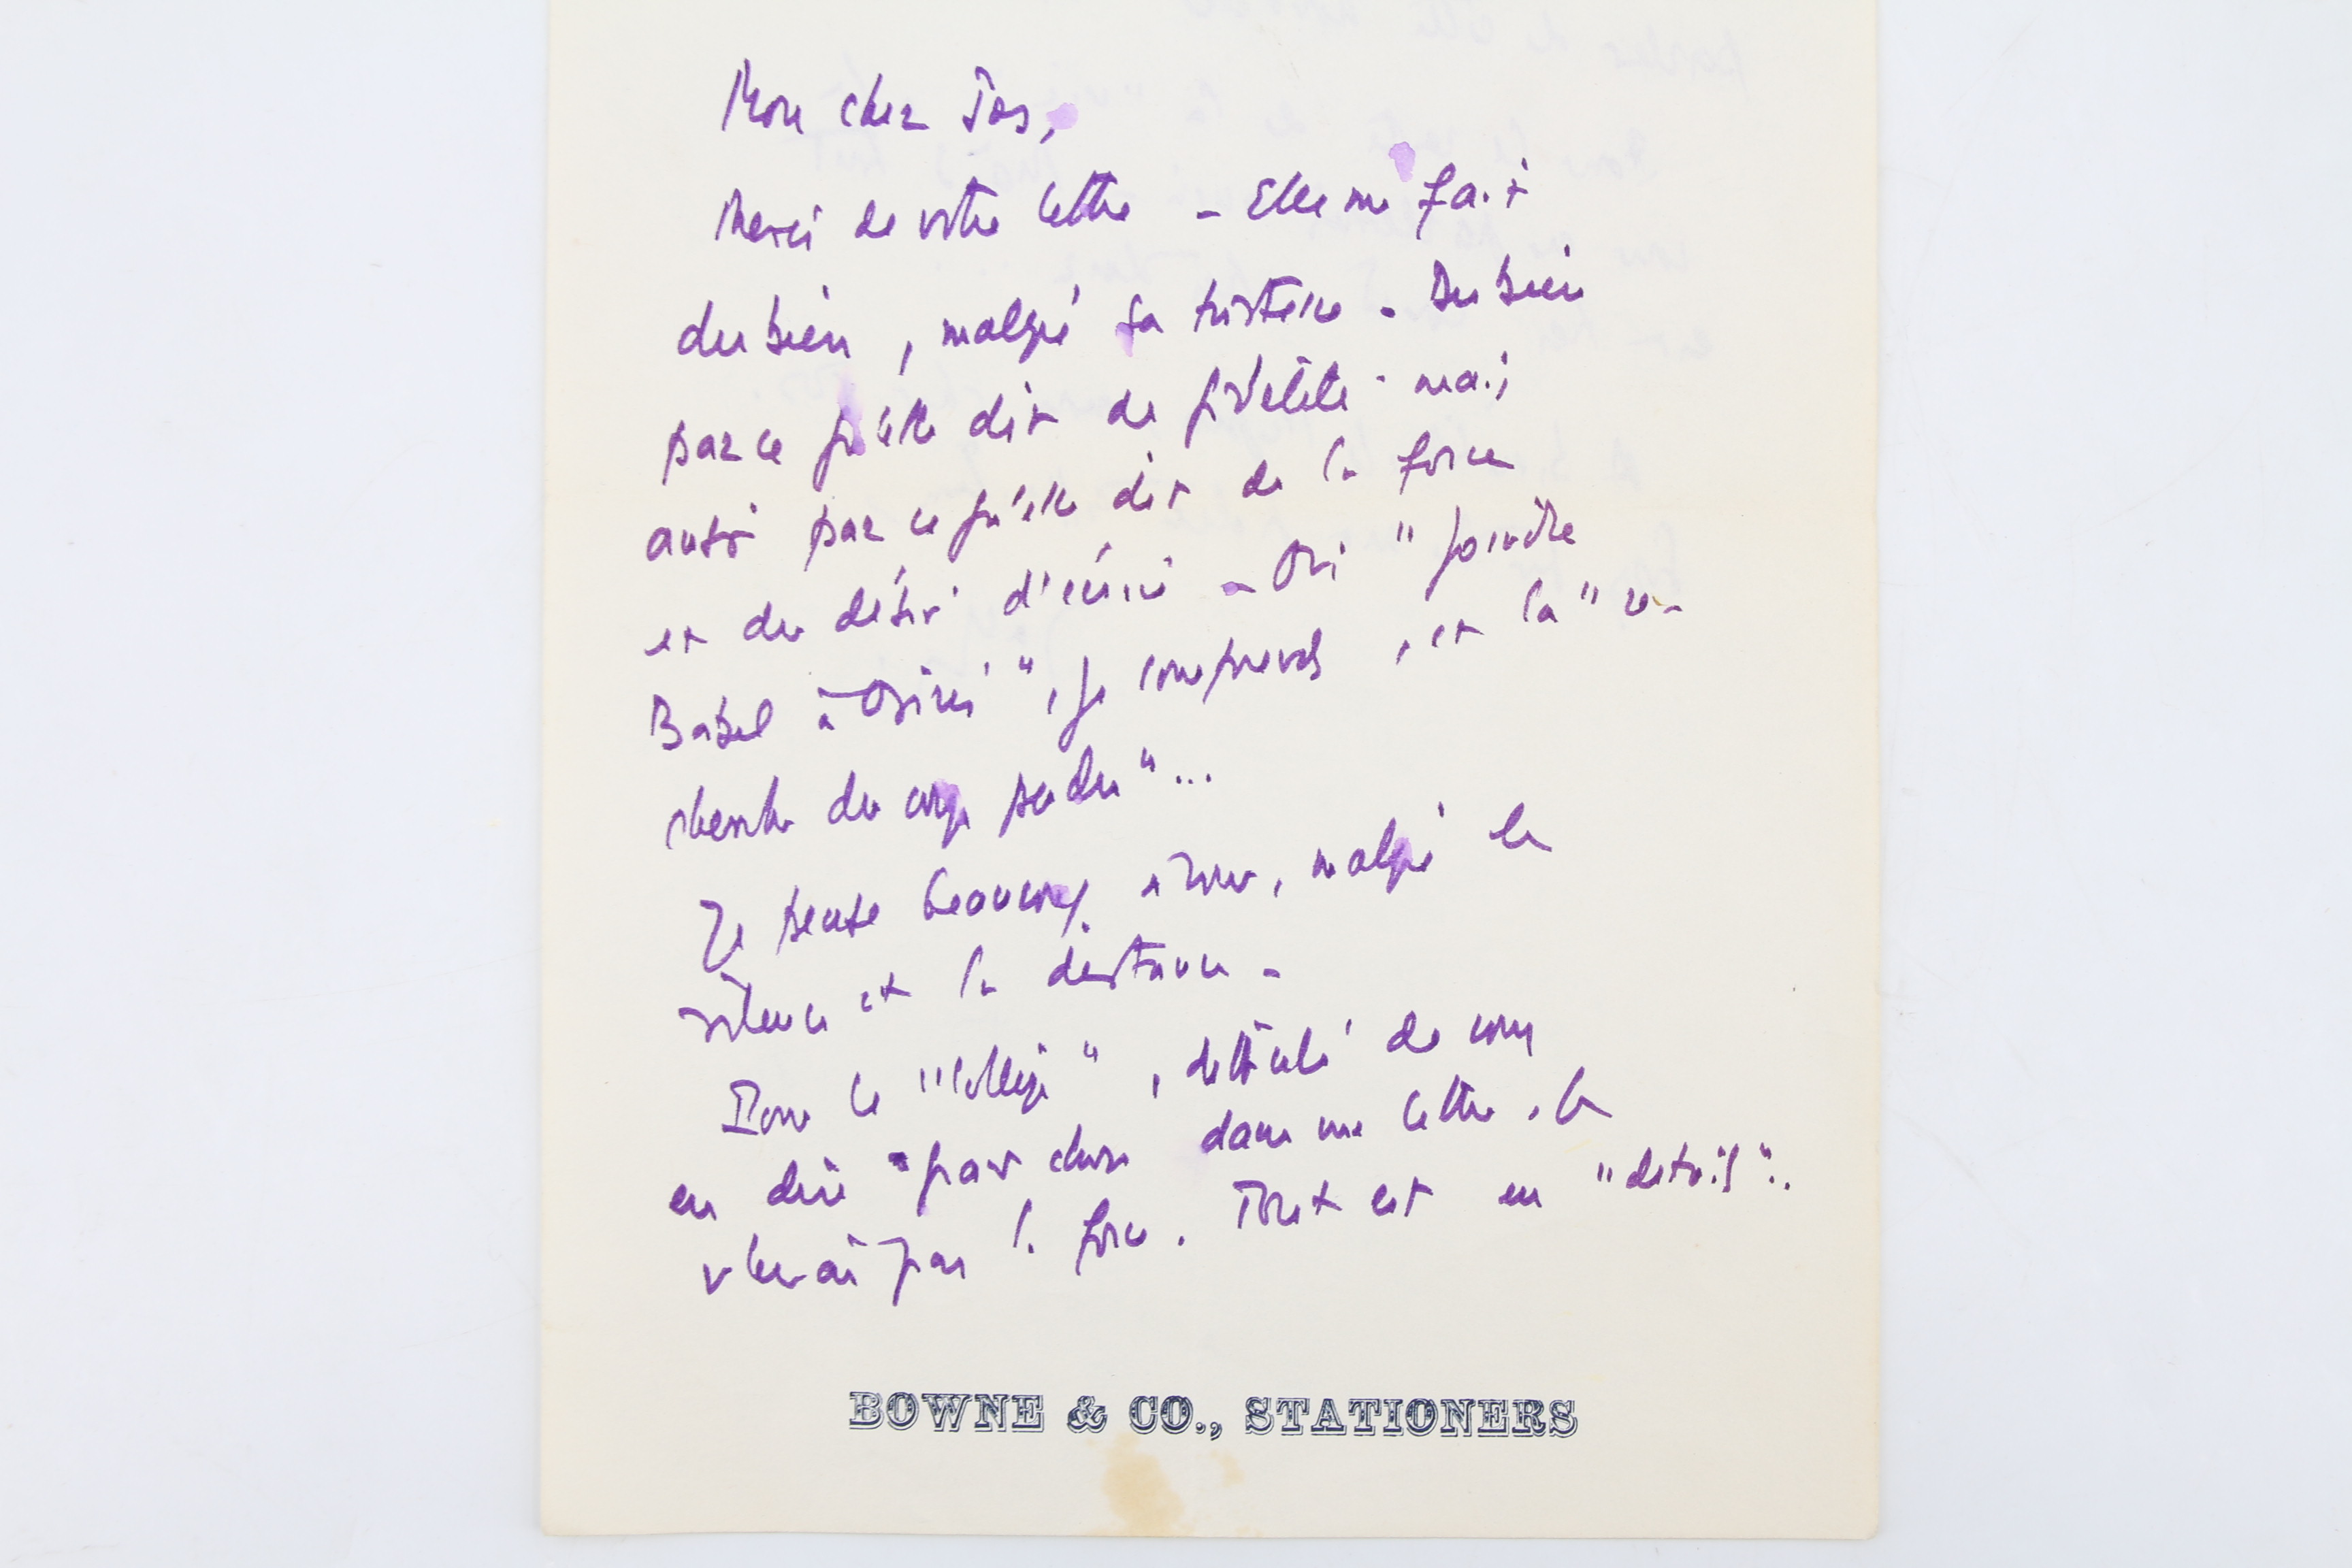 Mon cher Jos,
Merci de votre lettre - Elle me fait
du bien, malgré sa tristesse - Du bien
par ce qu'elle dit de fidélité - mais
aussi par ce qu'elle dit de la force
et du désir d'écrire - Oui "joindre
Babel à Osiris", je comprends, et la "re-
cherche du corps perdu"...
Je pense beaucoup à vous, malgré le
silence et la distance -
Pour le "Collège", difficile de vous
en dire grand chose dans une lettre, le
pas la force. Tout est en "détails"..
BOWNE & CO., STATIONERS